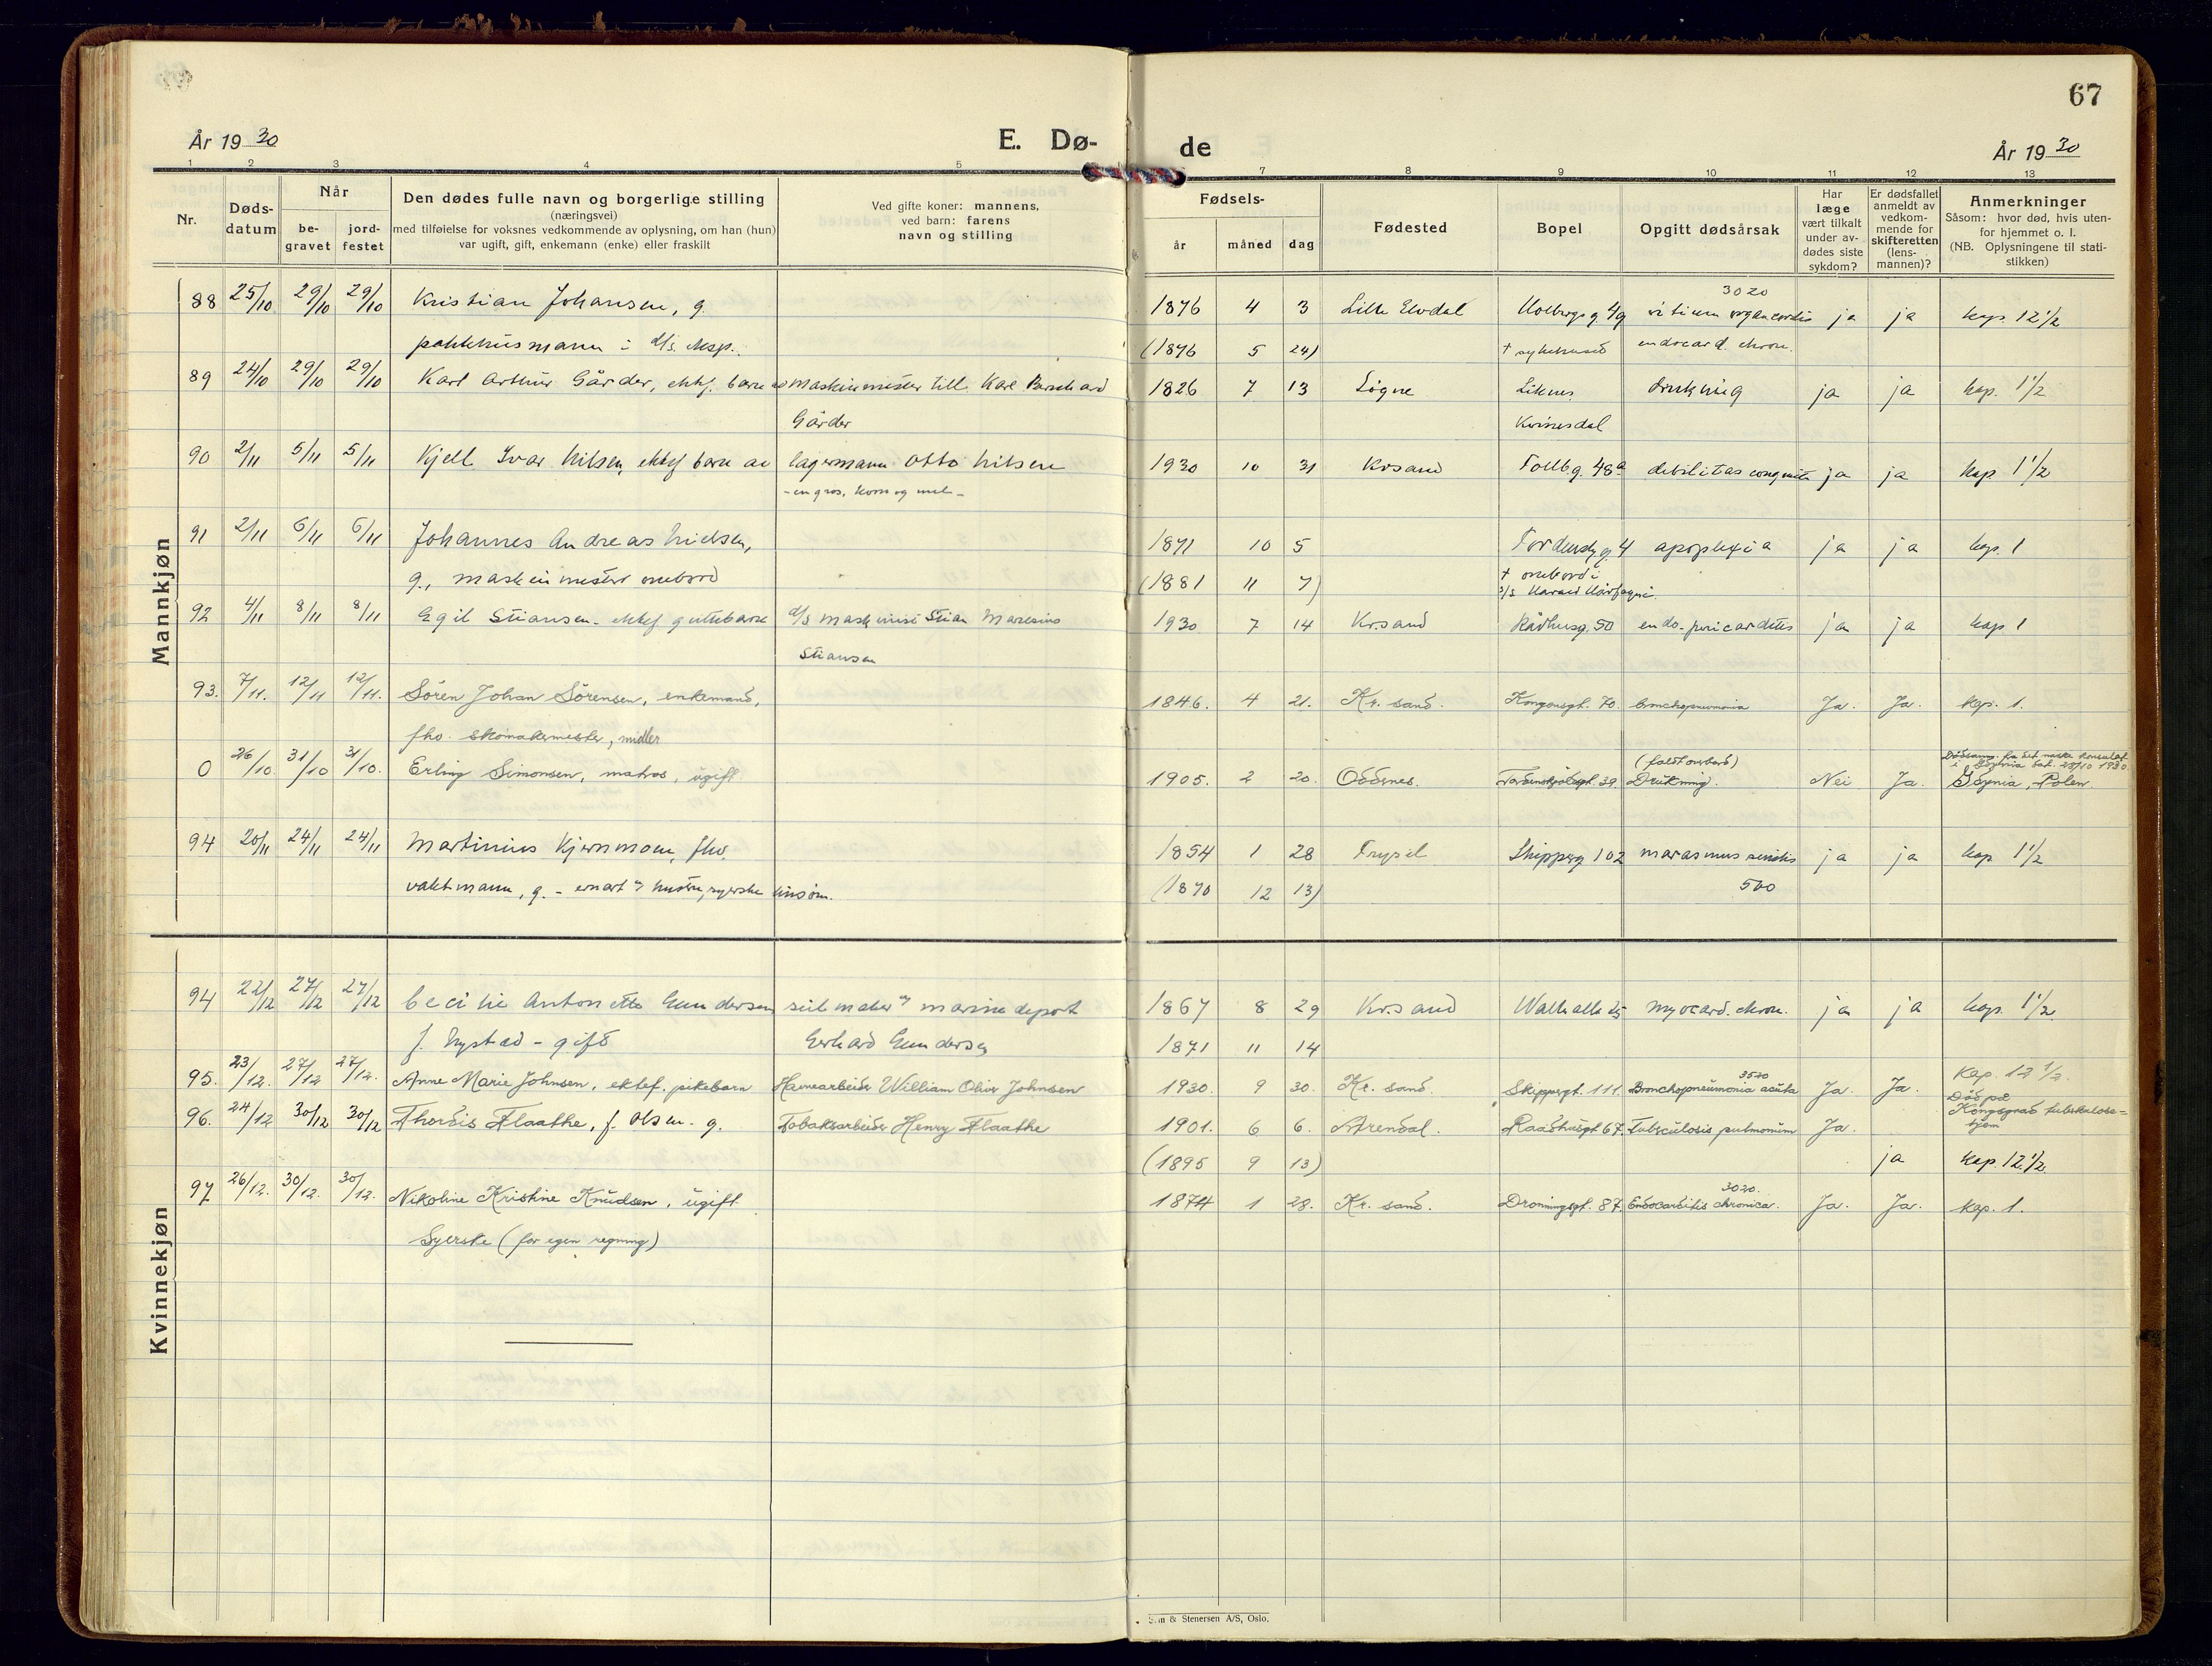 67
År 1930 E. Dø-de År 1930
1 2 3 4 5 7 8 9 10 11 12 13
Nr. Dødsdatum Når begravet jordfestet
Den dødes fulle navn og borgerlige stilling
(næringsvei)
med tilføielse for voksnes vedkommende av oplysning, om han (hun)
var ugift, gift, enkemann (enke) eller fraskilt
Ved gifte koner: mannens,
ved barn: farens
navn og stilling
Fødsels-
år måned dag
Fødested
Bopel
Opgitt dødsårsak
Har læge vært tilkalt under avdødes siste sykdom?
Er dødsfallet anmeldt av vedkommende for skifteretten (lensmannen)?
Anmerkninger
Såsom: hvor død, hvis utenfor hjemmet o. l.
(NB. Oplysningene til statistikken)
Mannkjøn
3020
88 25/10 29/10 29/10 Kristian Johansen, g. 1876 4 3 Lille Elvdal Holbergsg. 4g vitium organ cordis ja ja kap. 12 1/2
pakkhusmann i d/s eksp. (1876 5 24) † sykehuset endocard. chron.
89 24/10 29/10 29/10 Karl Arthur Gårder, ektf. barn av maskinmester till. Karl Gårder 1826 7 13 Søgne Liknes Kvinesdal drukning ja ja kap. 1 1/2
90 2/11 5/11 5/11 Kjell Ivar Nilsen, ektef barn av lagermann Otto Nilsen 1930 10 31 Krsand Tollbg. 48a debilitas congenita ja ja kap 1 1/2
- en gros, korn og mel -
91 2/11 6/11 6/11 Johannes Andreas Nielsen, 1871 10 5 4 apoplexia ja ja kap. 1
g., maskinmester ombord (1881 11 7) † ombord i
s/s Harald Hårfagre.
92 4/11 8/11 8/11 Egil Stiansen - ektef guttebarn d/s maskinist Stian 1930 7 14 Kr.sand Rådhusg. 50 endo-pericarditis ja ja kap 1
Stiansen
93. 7/11. 12/11 12/11. Sören Johan Sörensen, enkemand, 1846. 4 21. Kr. sand. Kongensgt. 70. bronchopneumonia Ja. Ja. kap. 1.
fhv. skomakermester, midler
(faldt overbord) Dödsanm. fra det norske konsulat
i Gdynia dat. 28/10 1930
0 26/10 31/10 31/10. Erling Simonsen, matros, ugift 1905. 2 20. Oddernes. Tordenskjoldsgt. 39. Drukning. Nei Ja. Gdynia, Polen.
94 20/11 24/11 24/11 Martinius Kjernmoen, fhv. 1854 1 28 Trysil Skipperg 102 marasmus senilis ja ja kap 1 1/2
vaktmann, g. (1870 12 13) 500
Kvinnekjøn
94 22/12 27/12 27/12 Cecilie Antonette Gundersen seilmaker v/ marine depot 1867 8 29 Kr.sand Walhalla 25 myocard. chron. ja ja kap. 1 1/2
f. Nystad - gift Gerhard Gundersen 1871 11 14
3520
95. 23/12. 27/12 27/12. Anne Marie Johnsen, ektef. pikebarn Havnearbeider William Oliver Johnsen 1930. 9 30. Kr. sand. Skippergt. 111. Bronchopneumonia acuta Ja. Ja. Kap. 12 1/2.
96. 24/12 30/12 30/12 Thordis Flaathe, f. Olsen. g. Tobaksarbeider Henry Flaathe 1901. 6 6. Arendal. Raadhusgt 67. Tubsculosis pulmonum Ja. Död på
Kongsgard tubskulose=
hjem
(1895 9 13) ja kap. 12 1/2
3020.
97 26/12. 30/12. 30/12. Nikoline Kristine Knudsen, ugift 1874 1 28. Kr. sand. Dronningsgt. 87. Endocarditis chronica. Ja. Ja. kap. 1.
Syerske (for egen regning)
Sem & Stenersen A/S, Oslo.